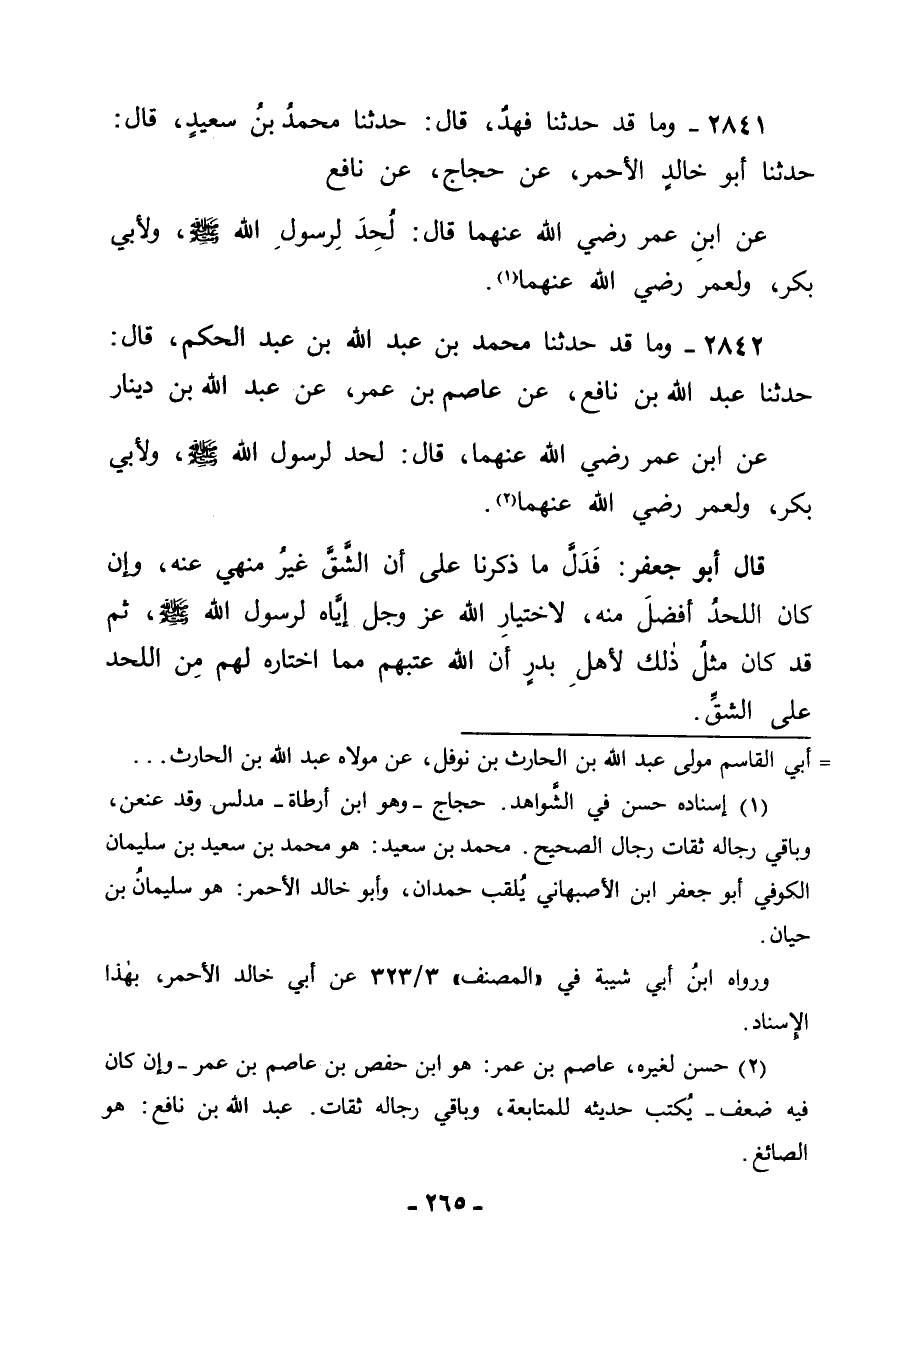 ٢٨٤١ ـ وما قد حدثنا فهدٌ، قال: حدثنا محمدُ بنُ سعيدٍ، قال:
حدثنا أبو خالدٍ الأحمر، عن حجاج، عن نافع
عن ابنِ عمر رضي الله عنهما قال: لُحِدَ لِرسولِ الله ﷺ، ولأبي
بكر، ولعمر رضي الله عنهما(١).
٢٨٤٢ ـ وما قد حدثنا محمد بن عبد الله بن عبد الحكم، قال:
حدثنا عبد الله بن نافع، عن عاصم بن عمر، عن عبد الله بن دينار
عن ابن عمر رضي الله عنهما، قال: لحد لرسول الله ﷺ، ولأبي
بكر، ولعمر رضي الله عنهما(٢).
قال أبو جعفر: فَدَلَّ ما ذكرنا على أن الشَّقَّ غيرُ منهي عنه، وإن
كان اللحدُ أفضلَ منه، لاختيارِ الله عز وجل إيَّاه لرسول الله ﷺ، ثم
قد كان مثلُ ذٰلك لأهلِ بدرٍ أن الله عتبهم مما اختاره لهم مِن اللحد
على الشقِّ.
= أبي القاسم مولى عبد الله بن الحارث بن نوفل، عن مولاه عبد الله بن الحارث. . .
(١) إسناده حسن في الشَّواهد. حجاج ـ وهو ابن أرطاة ـ مدلس وقد عنعن،
وباقي رجاله ثقات رجال الصحيح. محمد بن سعيد: هو محمد بن سعيد بن سليمان
الكوفي أبو جعفر ابن الأصبهاني يُلقب حمدان، وأبو خالد الأحمر: هو سليمانُ بن
حيان.
ورواه ابنُ أبي شيبة في «المصنف» ٣٢٣/٣ عن أبي خالد الأحمر، بهٰذا
الإسناد.
(٢) حسن لغيره، عاصم بن عمر: هو ابن حفص بن عاصم بن عمر ـ وإن كان
فيه ضعف ـ يُكتب حديثه للمتابعة، وباقي رجاله ثقات. عبد الله بن نافع: هو
الصائغ.
ـ ٢٦٥ ـ